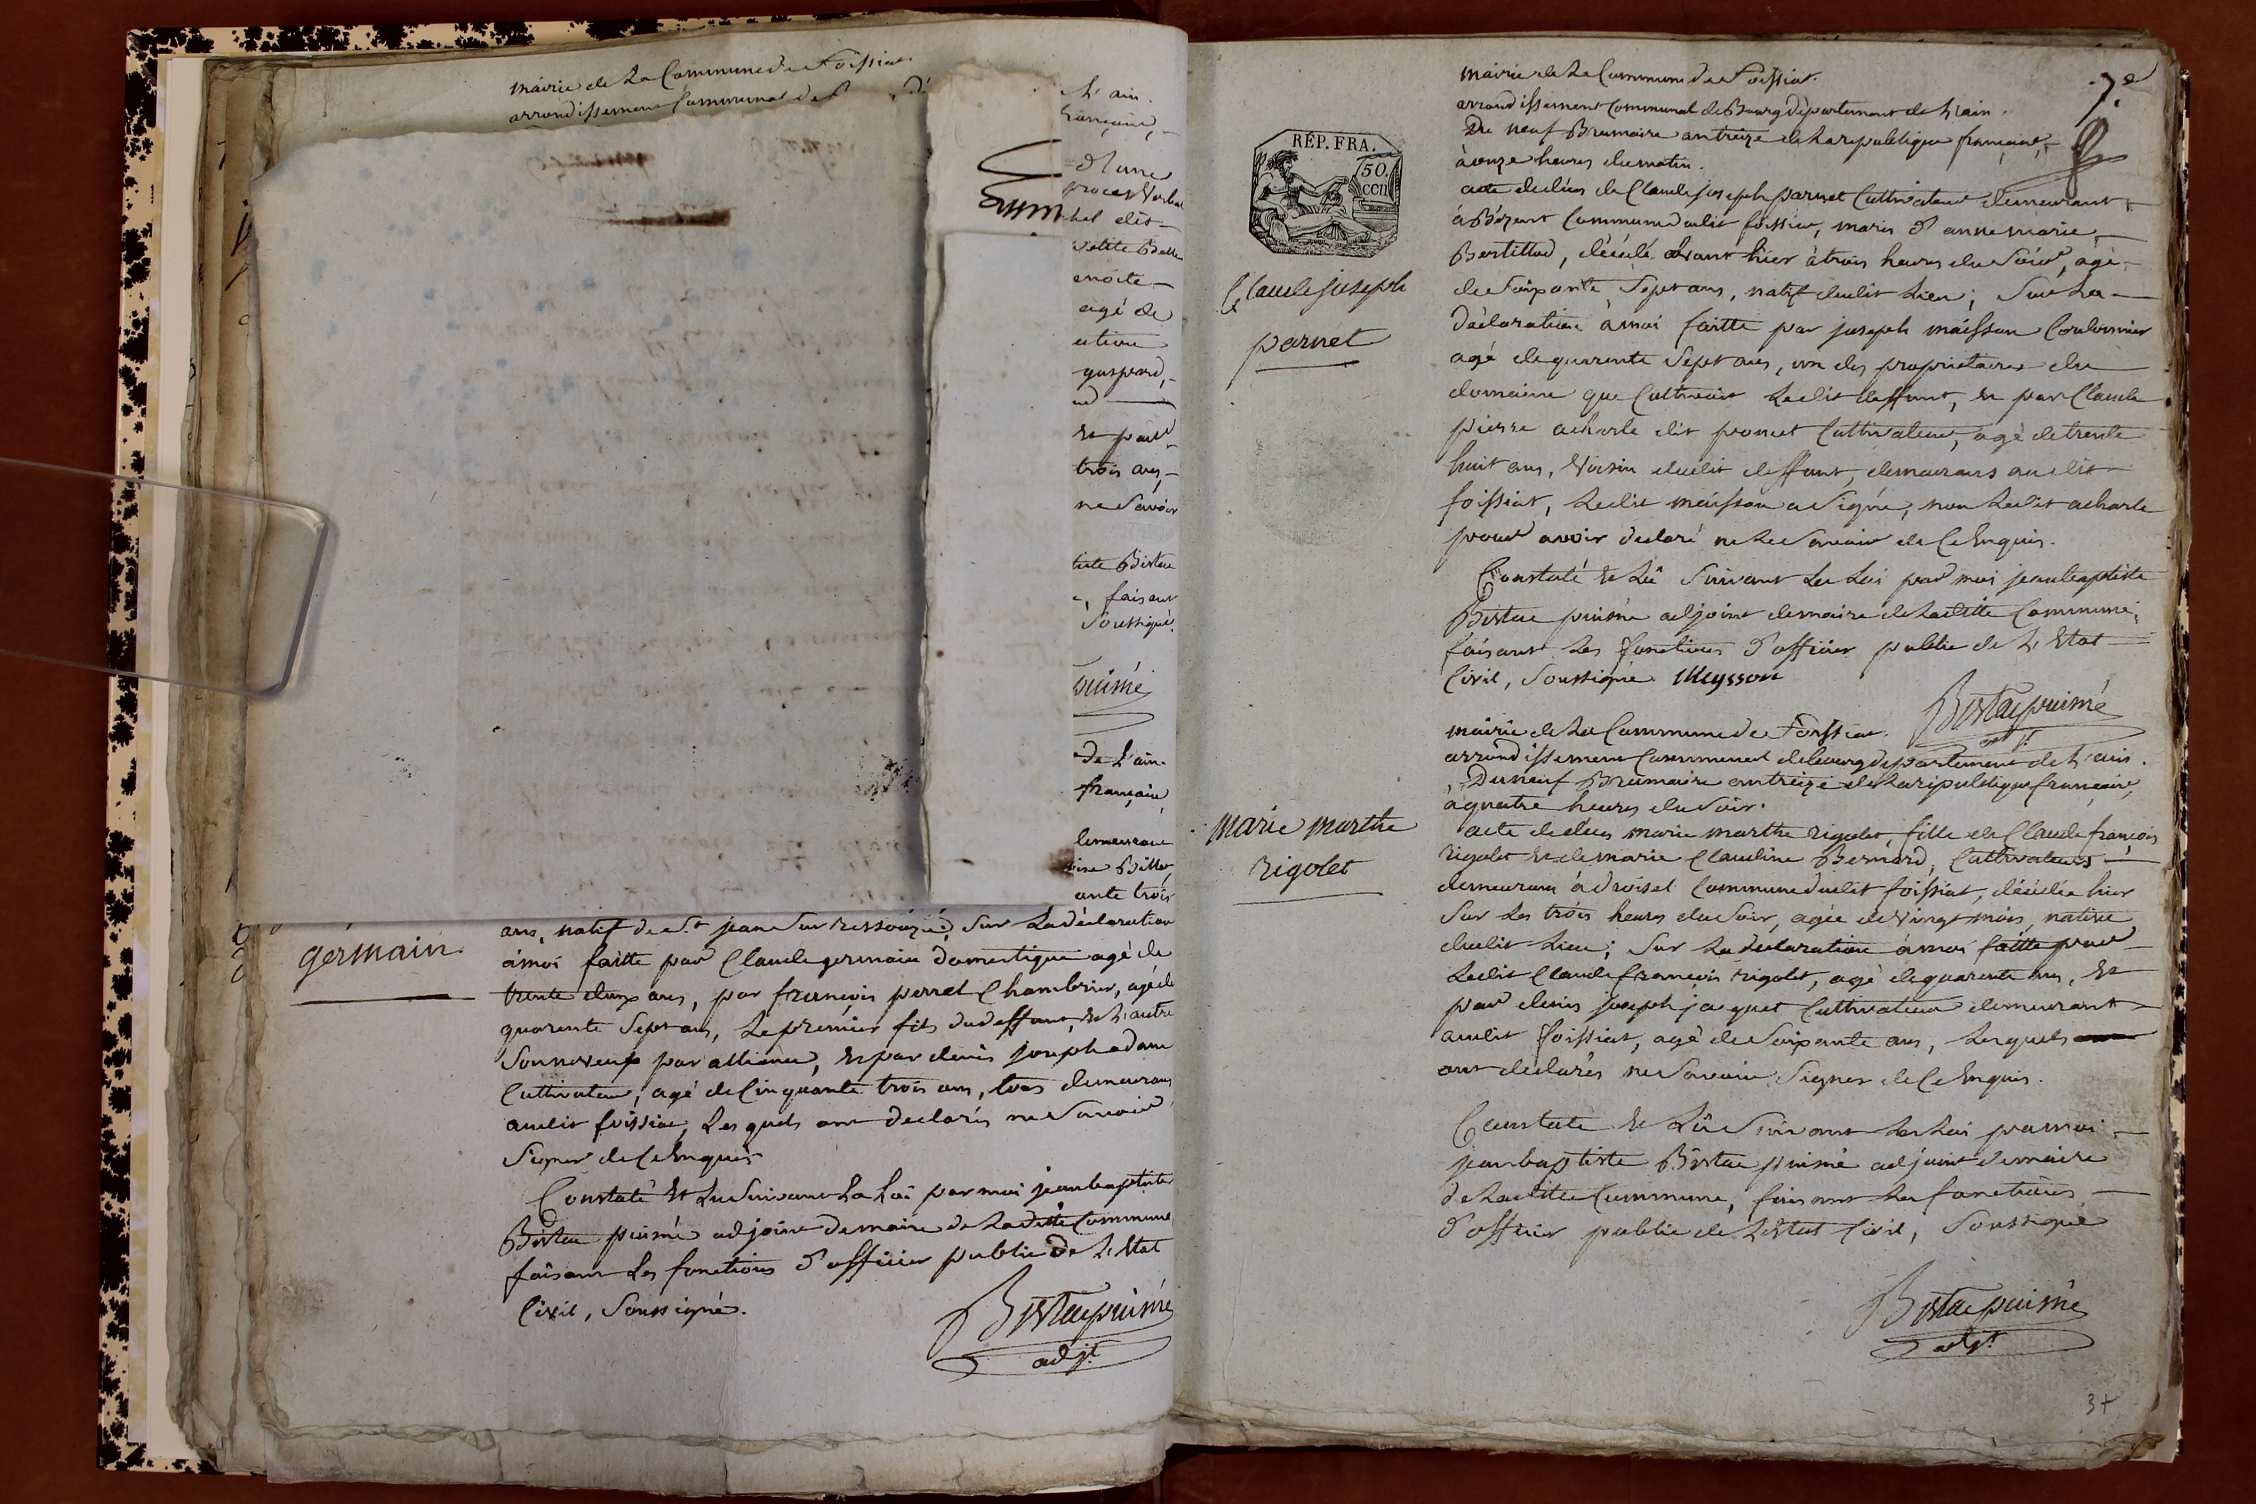 mairie de La Commune de Foissiat
arrondissement Communal de B
L'ain.
française,
D'une
procès Verbal
dit
agé de
gaspard,
Et par
trois ans,
ne Savoir
Bistac
, faisant
Soussigné.
puiné
De L'ain.
française,
demeurant
Billet,
ante trois
germain
ans, natif de St jean Sur ressouze; Sur La déclaration
à moi faitte par Claude germain domestique agé de
trente deux ans, par françois perret Chambrier, agé de
quarente Sept ans, Le premier fils dudeffunt, Et L'autre
Son neveux par alliance, Et par denis joseph adam
Cultivateur, agé de Cinquante trois ans, tous demeurans
audit foissiat, Les quels ont declarés ne Savoir
Signer de Ce Enquis
Constaté Et Lu Suivant La Loi par moi jean baptiste
Bistac puiné adjoint de maire de La ditte Commune
faisant Les fonctions D'officier public De L'Etat
Civil, Soussigné.
Bistac puiné
adjt
mairie de La Commune de Foissiat.
7.e
arrondissement Communal de Bourg département de L'ain.
Du neuf Brumaire an treize de La republique française,
à onze heures du matin.
RÉP. FRA.
50.
cen
acte de déces de Claude joseph parnet Cultivateur demeurant
à Bézent Commune dudit foissiat, maris D'anne marie
Bertillod, décédé avant hier à trois heures du Soir, agé
de Soixante Sept ans, natif dudit Lieu; Sur La
Claude joseph
parnet
déclaration à moi faitte par joseph maisson Cordonnier
agé de quarente Sept ans, un des proprietaires du
domaine que Cultivoit Ledit deffunt, Et par Claude
pierre acharle dit poncet Cultivateur, agé de trente
huit ans, Voisin dudit deffunt, demeurans audit
foissiat, Ledit maisson a Signé, non Ledit acharle
pour avoir declaré ne Le Savoir de Ce Enquis.
Constaté Et Lû Suivant La Loi par moi jean baptiste
Bistac puiné adjoint de maire de La ditte Commune,
faisant Les fonctions D'officier public de L'Etat
Civil, Soussigné Meysson
Bistac puiné
adjt
mairie de La Commune de Foissiat.
arrondissement Communal de bourg departement de L'ain.
Du neuf Brumaire an treize de La republique française,
à quatre heures du Soir.
marie marthe
rigolet
acte de déces marie marthe rigolet, fille de Claude françois
rigolet Et de marie Claudine Bernard, Cultivateurs
demeurans à droiset Commune dudit foissiat, décédée hier
Sur Les trois heures du Soir, agée de Vingt mois, native
dudit Lieu; Sur La declaration à moi faitte par
Ledit Claude françois rigolet, agé de quarente ans, Et
par denis joseph jacquet Cultivateur demeurant
audit foissiat, agé de Soixante ans, Lesquels
ont déclarés ne Savoir Signer de Ce Enquis.
Constaté Et Lû Suivant La Loi par moi
jean baptiste Bistac puiné adjoint de maire
de La ditte Commune, faisant Les fonctions
D'officier public de L'Etat Civil, Soussigné
Bistac puiné
adjt